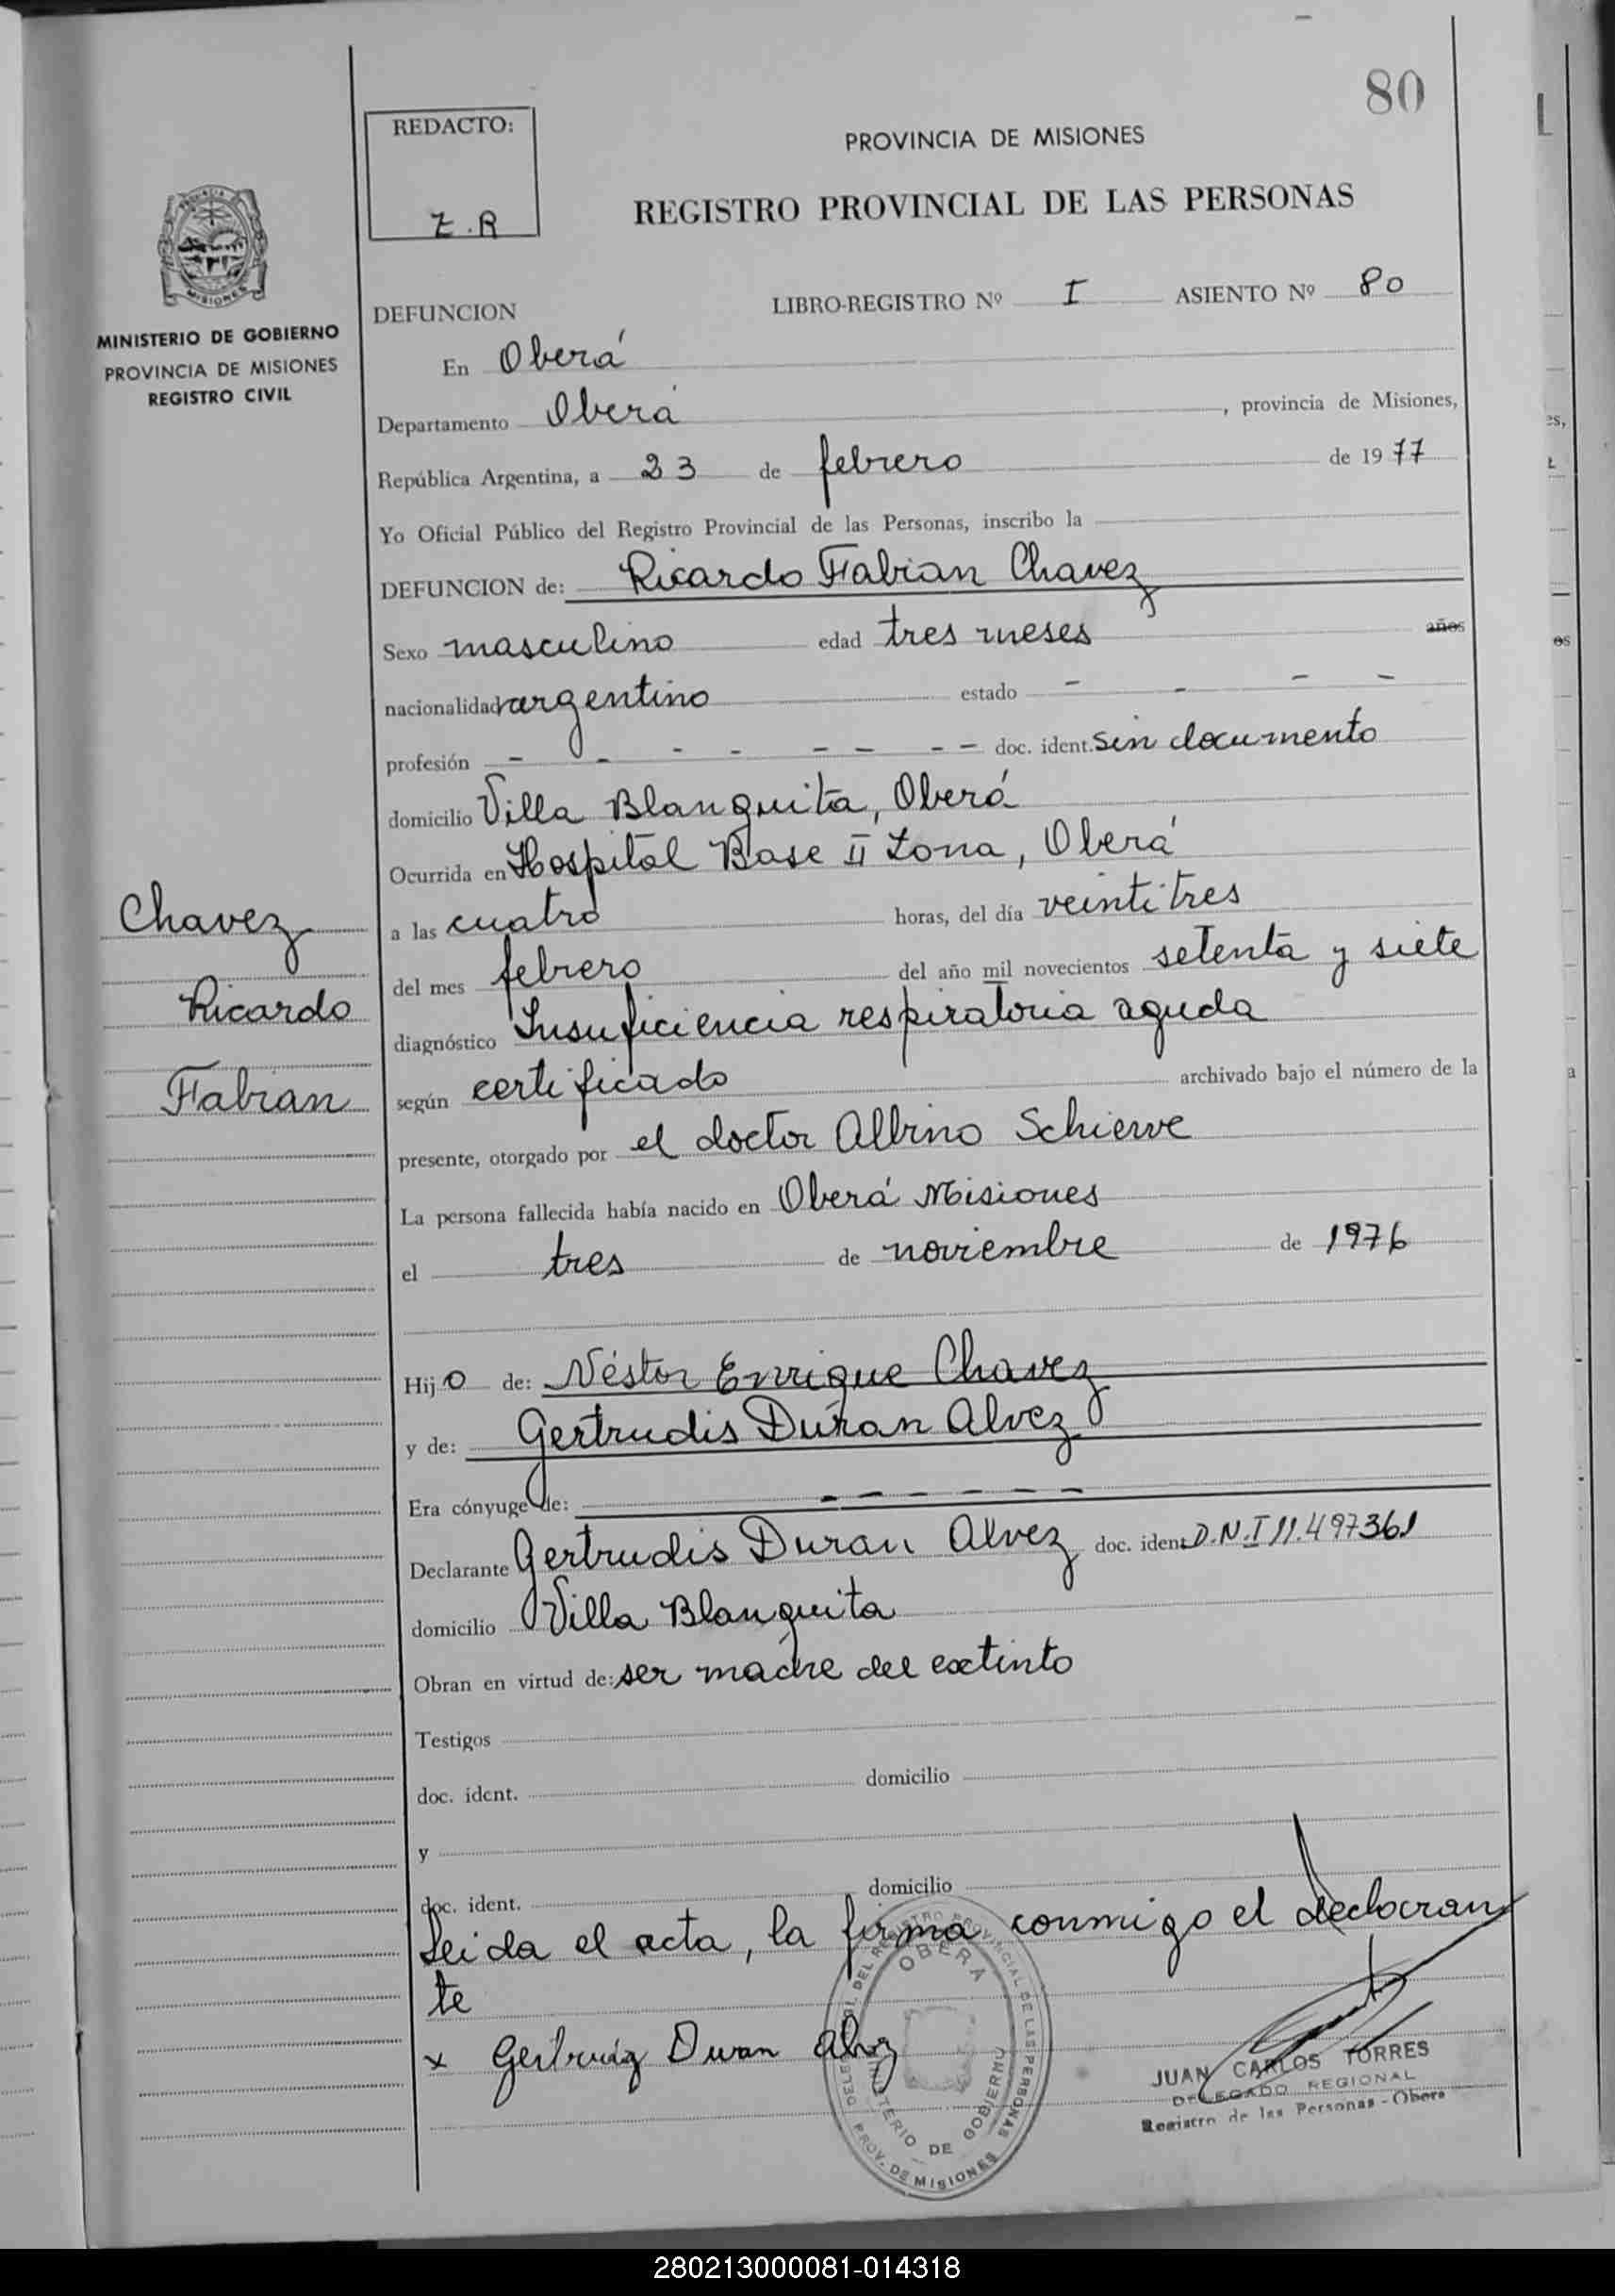 80
REDACTO:
Z.R
PROVINCIA DE MISIONES
REGISTRO PROVINCIAL DE LAS PERSONAS
MISIONES
MINISTERIO DE GOBIERNO
PROVINCIA DE MISIONES
REGISTRO CIVIL
DEFUNCION LIBRO-REGISTRO Nº I ASIENTO Nº 80
En Oberá
Departamento Oberá, provincia de Misiones,
República Argentina, a 23 de febrero de 1977
Yo Oficial Público del Registro Provincial de las Personas, inscribo la
DEFUNCION de: Ricardo Fabian Chavez
Sexo masculino edad tres meses años
nacionalidad argentino estado - - - -
profesión - - - - - - - doc. ident. sin documento
domicilio Villa Blanquita, Oberá
Ocurrida en Hospital Base II Zona, Oberá
a las cuatro horas, del día veintitres
del mes febrero del año mil novecientos setenta y siete
diagnóstico Insuficiencia respiratoria aguda
según certificado archivado bajo el número de la
presente, otorgado por el doctor Albino Schierve
La persona fallecida había nacido en Oberá Misiones
el tres de noviembre de 1976
Hijo de: Néstor Enrique Chavez
y de: Gertrudis Duran Alvez
Era cónyuge de: - - - - - -
Declarante Gertrudis Duran Alvez doc. ident. D.N.I 11.497361
domicilio Villa Blanquita
Obran en virtud de: ser madre del extinto
Testigos
doc. ident. domicilio
y
doc. ident. domicilio
Leida el acta, la firma conmigo el declaran
te
x Gertrudiz Duran Alvez
Chavez
Ricardo
Fabian
DELEG. DEL REGISTRO PROVINCIAL DE LAS PERSONAS
OBERÁ
MINISTERIO DE GOBIERNO
PROV. DE MISIONES
JUAN CARLOS TORRES
DELEGADO REGIONAL
Registro de las Personas - Obera
280213000081-014318